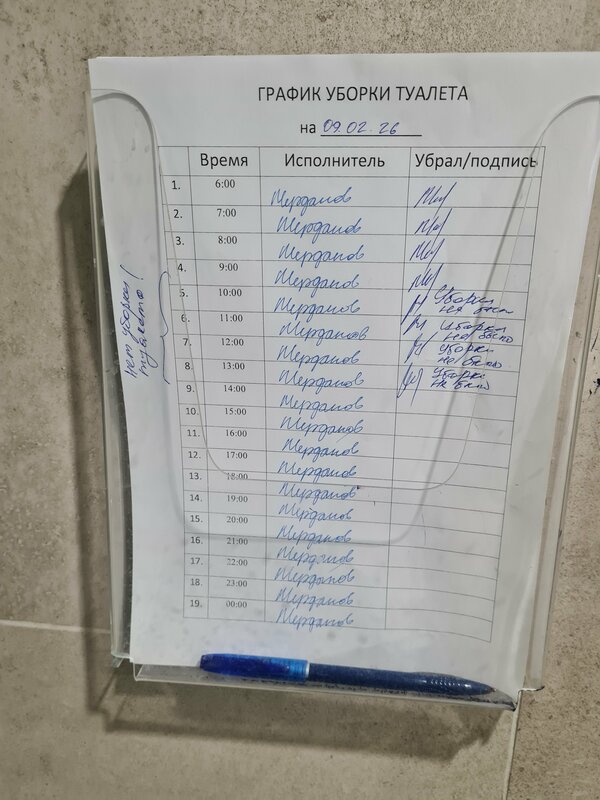 ГРАФИК УБОРКИ ТУАЛЕТА
на 09.02.26
Время Исполнитель Убрал/подпись
1. 6:00 Мерданов
2. 7:00 Мерданов
3. 8:00 Мерданов
4. 9:00 Мерданов
5. 10:00 Мерданов Уборки не было
6. 11:00 Мерданов Уборки не было
7. 12:00 Мерданов Уборки не было
8. 13:00 Мерданов Уборки не было
9. 14:00 Мерданов
10. 15:00 Мерданов
11. 16:00 Мерданов
12. 17:00 Мерданов
13. 18:00 Мерданов
14. 19:00 Мерданов
15. 20:00 Мерданов
16. 21:00 Мерданов
17. 22:00 Мерданов
18. 23:00 Мерданов
19. 00:00 Мерданов
нет уборки
туалета!